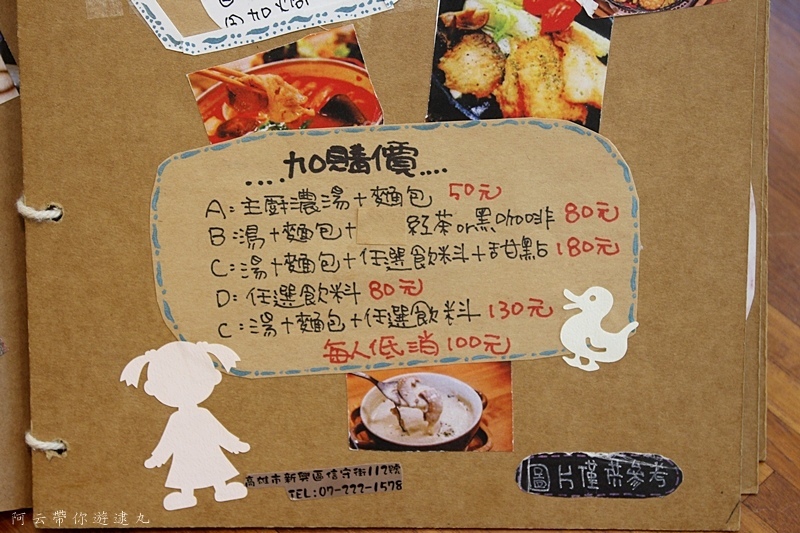 加購價....
A:主廚濃湯+麵包 50元
B:湯+麵包+ 紅茶or黑咖啡 80元
C:湯+麵包+任選飲料+甜點 180元
D:任選飲料 80元
C:湯+麵包+任選飲料 130元
每人低消100元
高雄市新興區信守街112號
TEL:07-222-1578
圖片僅供參考
阿云帶你遊逮丸